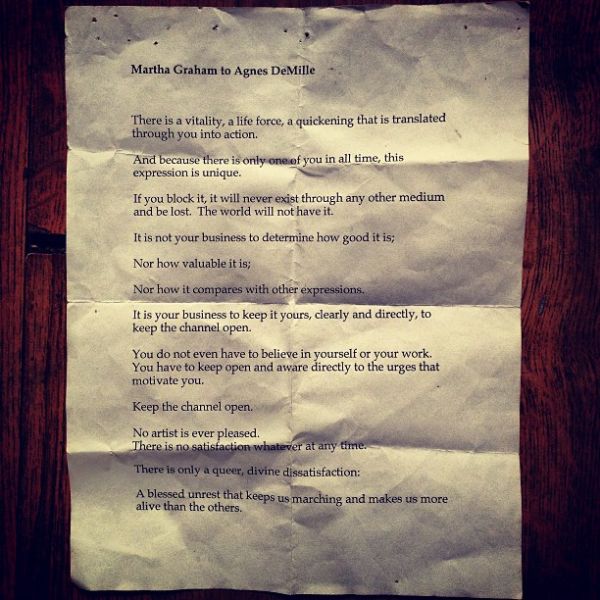 Martha Graham to Agnes DeMille
There is a vitality, a life force, a quickening that is translated
through you into action.
And because there is only one of you in all time, this
expression is unique.
If you block it, it will never exist through any other medium
and be lost.  The world will not have it.
It is not your business to determine how good it is;
Nor how valuable it is;
Nor how it compares with other expressions.
It is your business to keep it yours, clearly and directly, to
keep the channel open.
You do not even have to believe in yourself or your work.
You have to keep open and aware directly to the urges that
motivate you.
Keep the channel open.
No artist is ever pleased.
There is no satisfaction whatever at any time.
There is only a queer, divine dissatisfaction:
A blessed unrest that keeps us marching and makes us more
alive than the others.